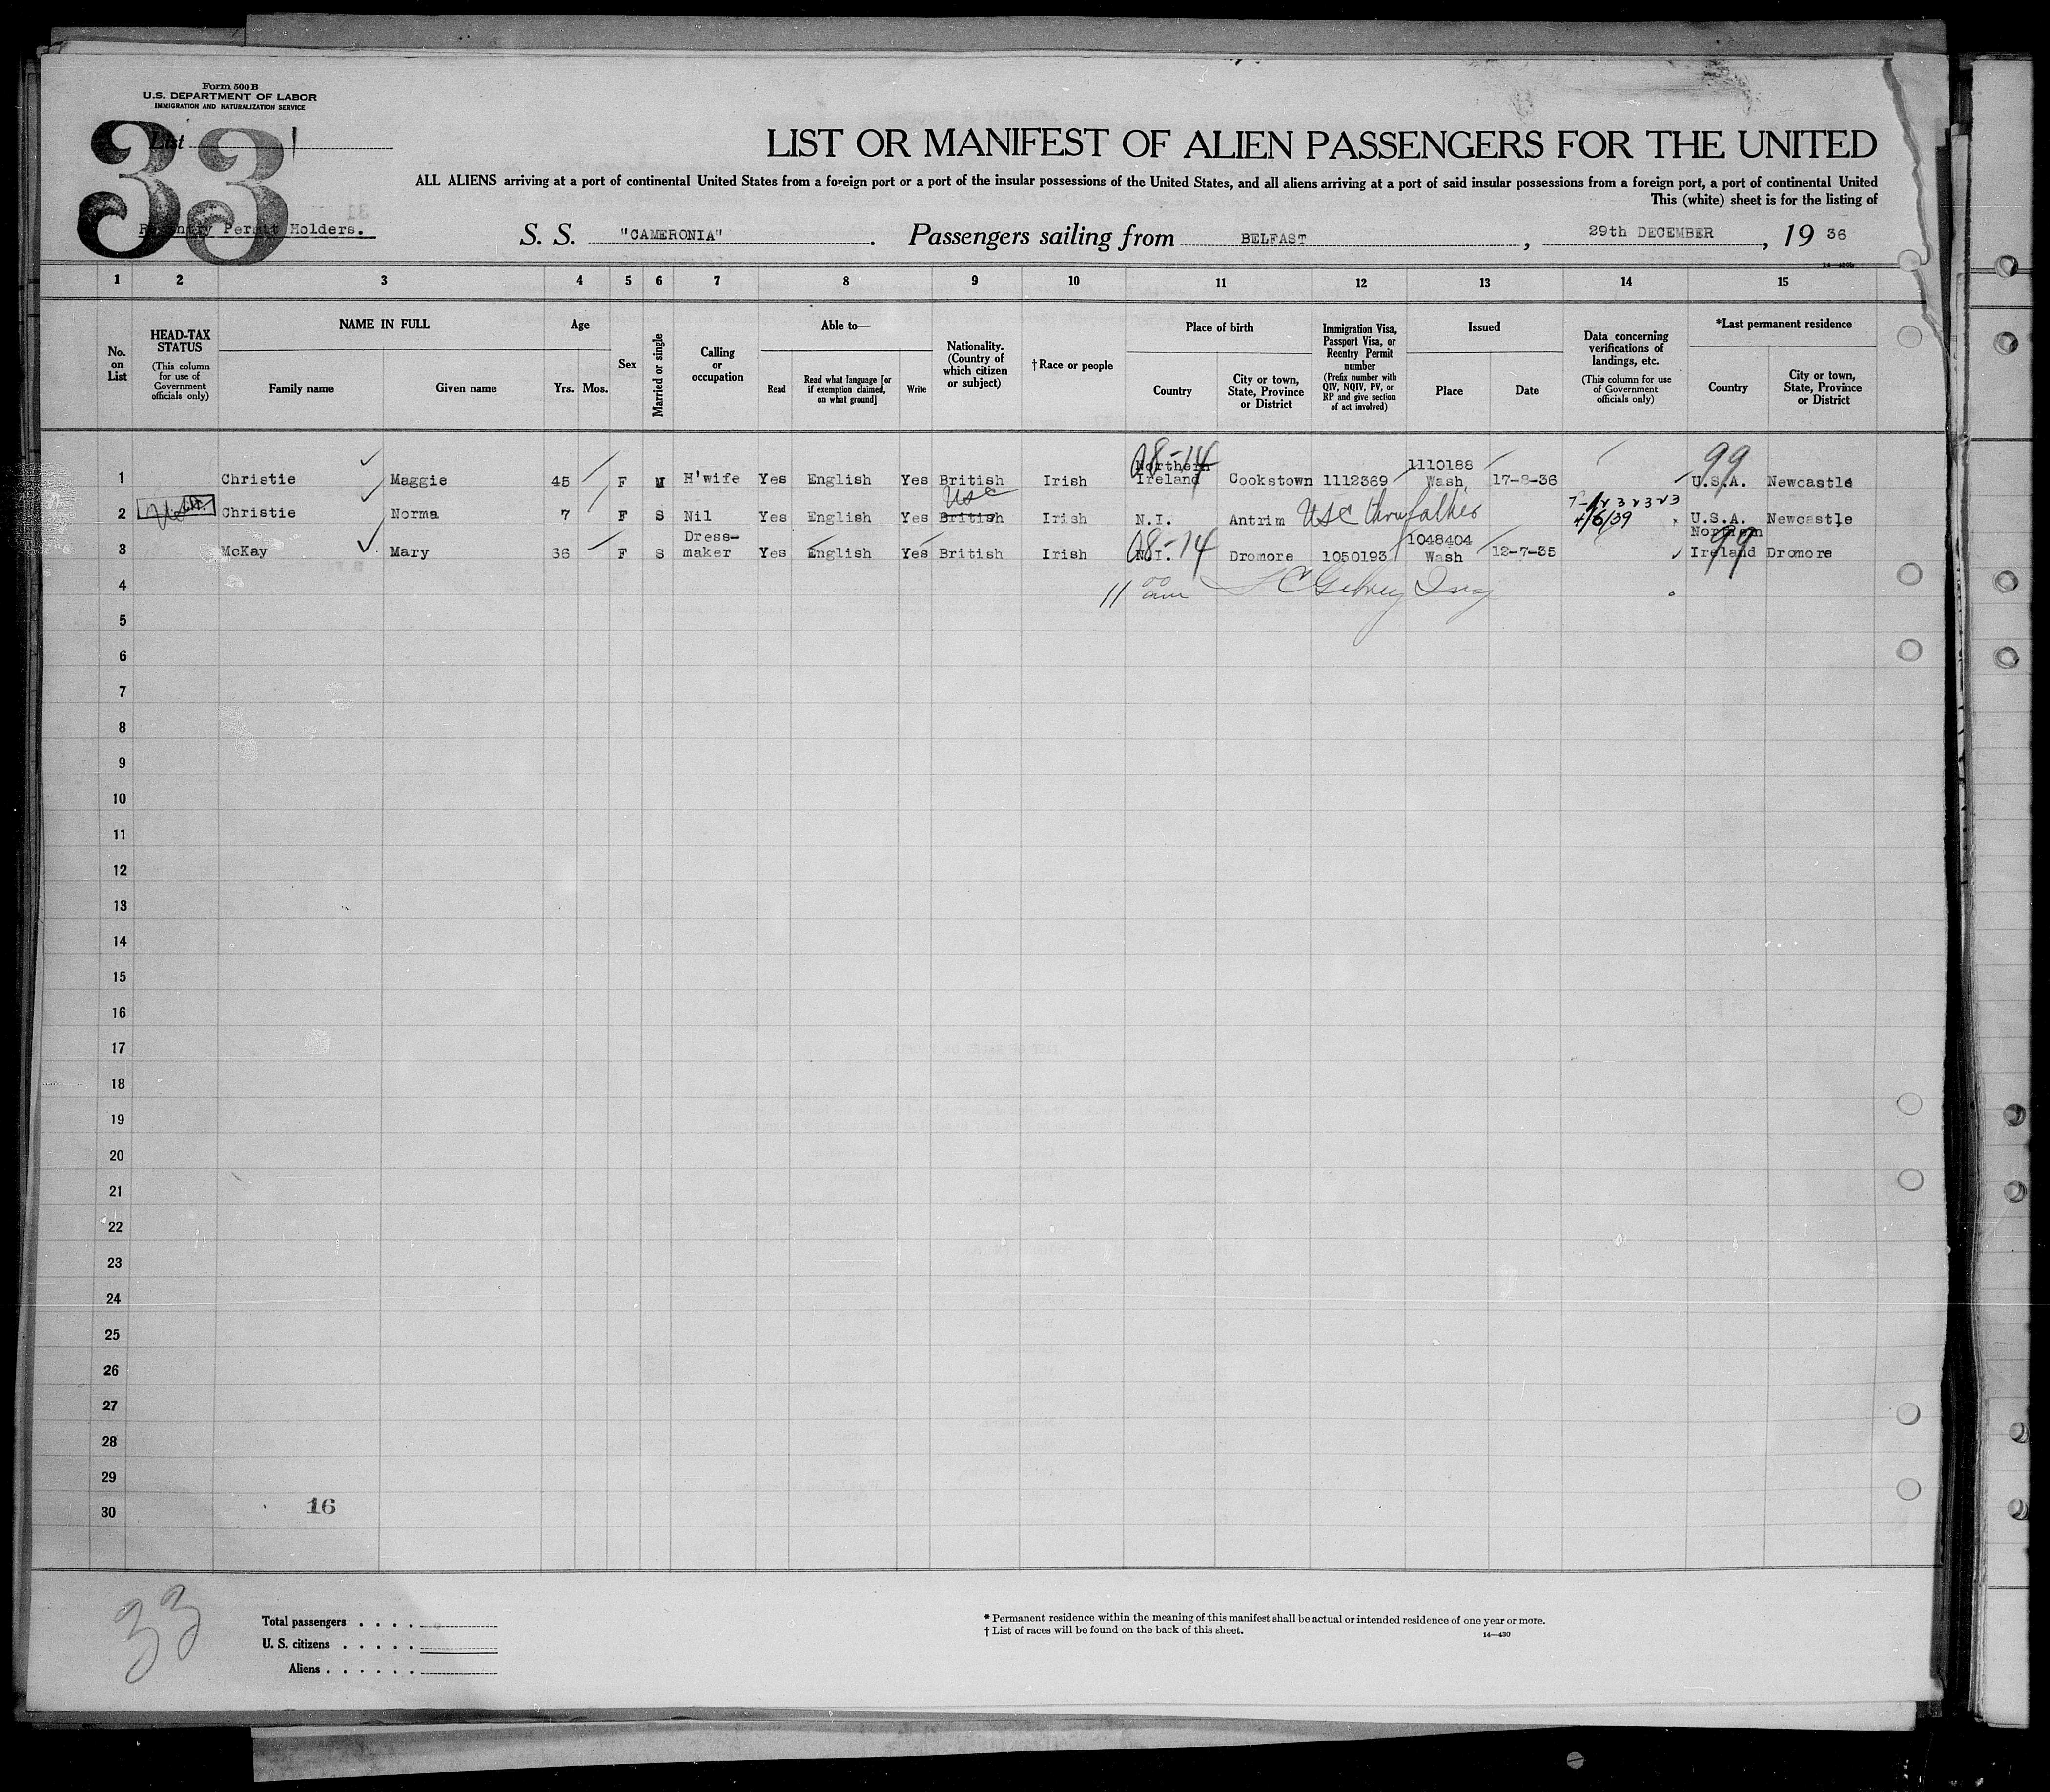 Form 500B
U.S. DEPARTMENT OF LABOR
IMMIGRATION AND NATURALIZATION SERVICE
List
33
LIST OR MANIFEST OF ALIEN PASSENGERS FOR THE UNITED
ALL ALIENS arriving at a port of continental United States from a foreign port or a port of the insular possessions of the United States, and all aliens arriving at a port of said insular possessions from a foreign port, a port of continental United
This (white) sheet is for the listing of
Reentry Permit Holders.
S. S. "CAMERONIA". Passengers sailing from BELFAST, 29th DECEMBER, 19 36
14—430b
1 2 3 4 5 6 7 8 9 10 11 12 13 14 15
No. on List
HEAD-TAX STATUS (This column for use of Government officials only)
NAME IN FULL
Family name
Given name
Age
Yrs. Mos.
Sex
Married or single
Calling or occupation
Able to—
Read
Read what language [or if exemption claimed, on what ground]
Write
Nationality. (Country of which citizen or subject)
† Race or people
Place of birth
Country
City or town, State, Province or District
Immigration Visa, Passport Visa, or Reentry Permit number (Prefix number with QIV, NQIV, PV, or RP and give section of act involved)
Issued
Place
Date
Data concerning verifications of landings, etc. (This column for use of Government officials only)
*Last permanent residence
Country
City or town, State, Province or District
08-14 99
1 Christie Maggie 45 F M H'wife Yes English Yes British Irish Northern Ireland Cookstown 1112369 1110188 Wash, 17-8-36 U.S.A. Newcastle
USC
2 Christie Norma 7 F S Nil Yes English Yes British Irish N.I. Antrim USC thru father 4/6/39 U.S.A. Newcastle
08-14 99
3 McKay Mary 36 F S Dress-maker Yes English Yes British Irish N.I. Dromore 1050193 1048404 Wash 12-7-35 Northern Ireland Dromore
4
11 00 am
5
6
7
8
9
10
11
12
13
14
15
16
17
18
19
20
21
22
23
24
25
26
27
28
29
30
16
33
Total passengers . . . .
U. S. citizens . . . . .
Aliens . . . . . .
* Permanent residence within the meaning of this manifest shall be actual or intended residence of one year or more.
† List of races will be found on the back of this sheet.
14—430